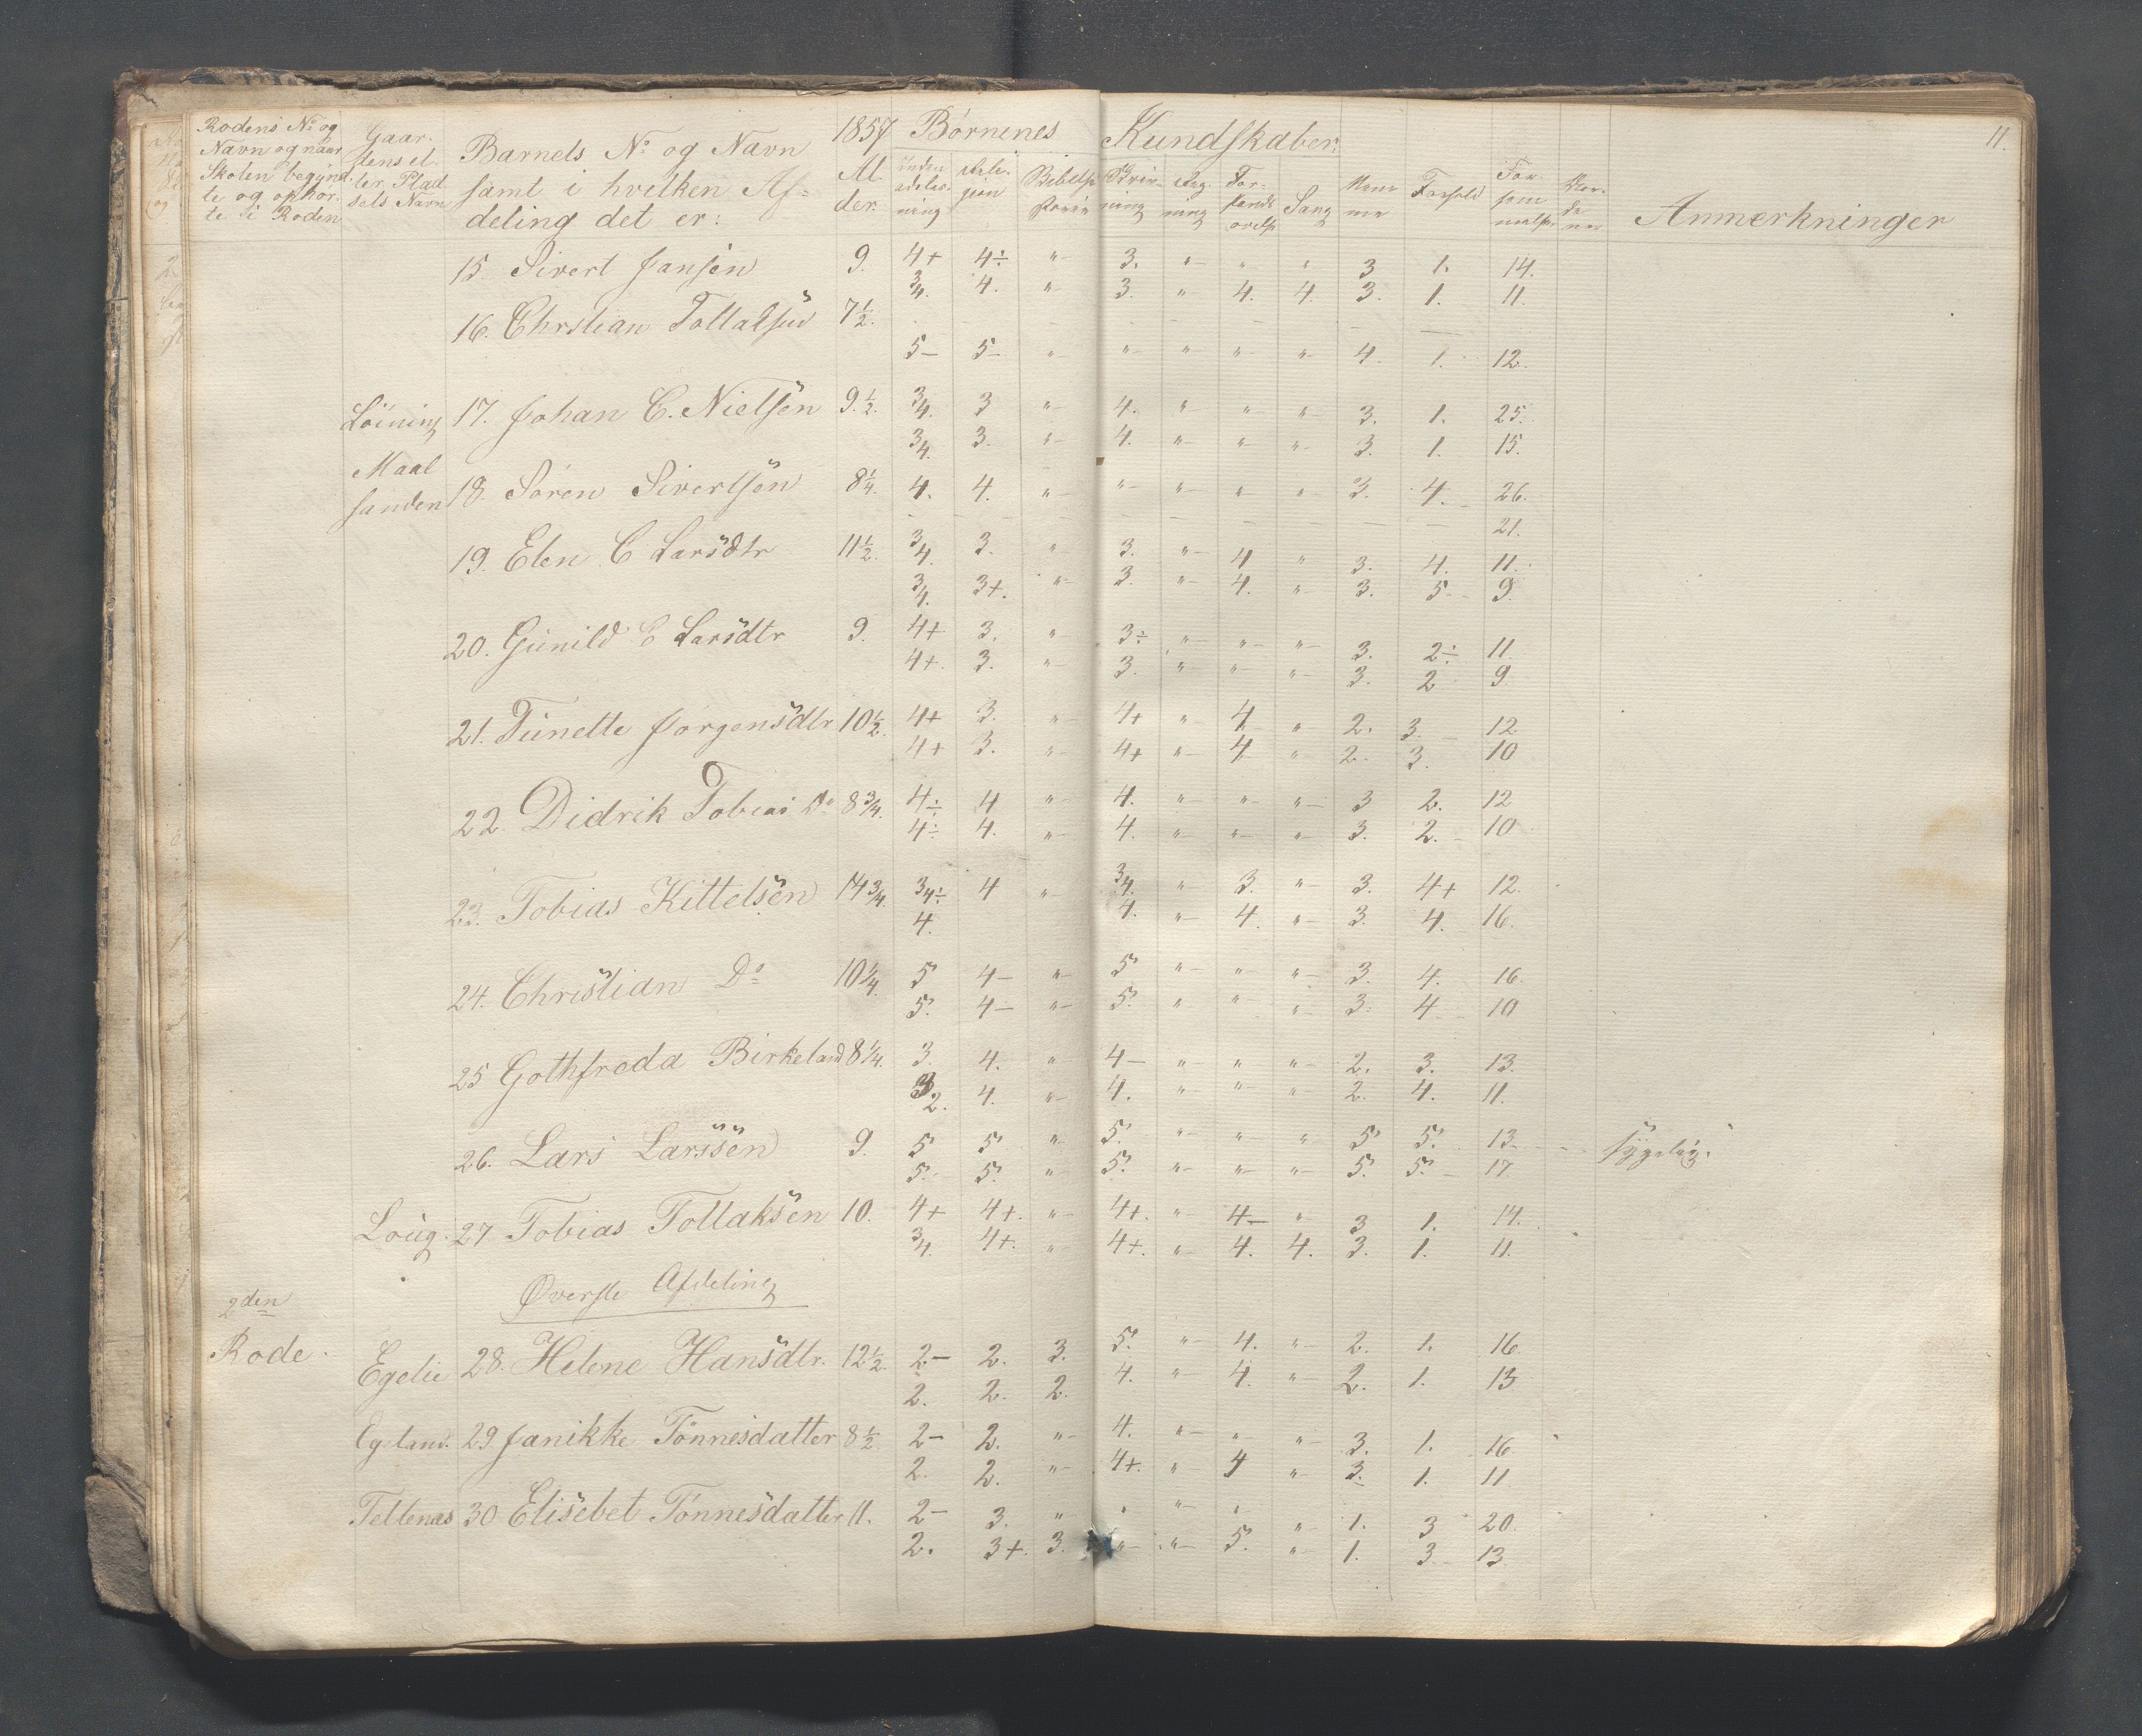 11.
Rodens No og Navn og naar Skolen begyndte og ophørte i Roden
Gaardens eller Pladsels Navn
Barnets No og Navn samt i hvilken Afdeling det er:
1857 Alder.
Børnenes Kundskaber.
Indenadlæsning Religion Skrivning Regning Sang Forhold
Anmerkninger
15. Sivert Jansen 9. 4+ 4÷ " 3. " " " 3 1. 14.
3/4. 4. " 3. " 4. 4. 3. 1. 11.
16. Chrstian Tollaksen 7 1/2.
5- 5- " " " " " 4. 1. 12.
Løining 17. Johan C. Nielsen 9. 1/2. 3/4. 3 " 4. " " " 3. 1. 25.
3/4. 3. " 4. " " " 3. 1. 15.
Maalsanden 18. Søren Sivertsen 8 1/4. 4. 4. " " " " " 3. 4. 26.
21.
19. Elen C Larsdtr 11 1/2. 3/4. 3. " 3. " 4 " 3. 4. 11.
3/4. 3+. " 3. " 4. " 3. 5. 9.
20. Gunild C Larsdtr 9. 4+ 3. " 3÷ " " " 3. 2÷ 11.
4+. 3. " 3. " " " 3. 2 9.
21. Tunette Jørgensdtr 10 1/2. 4+ 3. " 4+ " 4 " 2. 3. 12
4+ 3. " 4+ " 4 " 2. 3. 10
22. Didrik Tobias Do 8 3/4. 4÷ 4 " 4. " " " 3 2. 12
4÷ 4. " 4. " " " 3. 2. 10
23. Tobias Kittelsen 14 3/4. 3/4÷ 4 " 3/4. " 3. " 3. 4+ 12.
4. 4. " 4. " 3. 4. 16.
24. Christian Do 10 1/4. 5 4- " 5 " " " 3. 4. 16.
5. 4- " 5. " " " 3. 4 10
25 Gothfreda Birkeland 8 1/4. 3. 4. " 4- " " " 2. 3. 13.
3/2. 4. " 4. " " " 2. 4. 11.
26. Lars Larssen 9. 5 5 " 5. " " " 5 5. 13. sygelig.
5. 5. " 5. " " " 5. 5. 17.
Loug. 27 Tobias Tollaksen 10. 4+ 4+. " 4+. " 4- " 3 1. 14.
3/4. 4+. " 4+. " 4. 4. 3. 1. 11.
Øverste Afdeling
2den Rode.
Egelie 28. Helene Hansdtr. 12 1/2. 2- 2. 3. 5. " 4. " 2. 1. 16.
2. 2. 2. 4. " 4. " 2. 1. 13
Egeland. 29. Janikke Tønnesdatter 8 1/2. 2- 2. " 4. " " " 3. 1. 16.
2. 2. " 4+. " 4 " 3. 1. 11
Tellenæs 30 Elisebet Tønnesdatter 11. 2- 3. " " " 1. 3 20.
2. 3+. 3. " " 5. " 1. 3. 13.